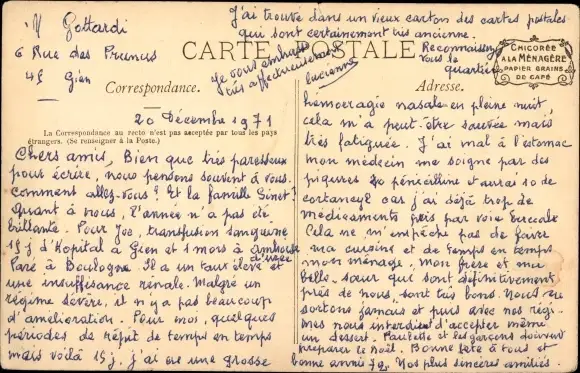 M Gottardi
6 Rue des Prunus
45 Gien
J'ai trouvé dans un vieux carton des cartes postales
qui sont certainement très ancienne.
Reconnaissez
vous le
quartier
CARTE POSTALE
Je vous embrasse
très affectueusement
Lucienne
CHICORÉE
A LA MÉNAGÈRE
PAPIER GRAINS
DE CAFÉ
Correspondance.
Adresse.
20 Décembre 1971
La Correspondance au recto n'est pas acceptée par tous les pays
étrangers. (Se renseigner à la Poste.)
Chers amis, Bien que très paresseux
pour écrire, nous pensons souvent à vous.
Comment allez-vous? Et la famille Sinet?
Quant à nous, l'année n'a pas été
brillante. Pour Joe, transfusion sanguine
15 j d'Hopital à Gien et 1 mois à Ambroise
Paré à Boulogne. Il a un taux élevé d'urée
et une insuffisance rénale. Malgré un
régime sévère, il n'y a pas beaucoup
d'amélioration. Pour moi, quelques
périodes de répit de temps en temps
mais voilà 15 j. j'ai eu une grosse
hémorragie nasale en pleine nuit,
cela m'a peut-être sauvée mais
très fatiguée. J'ai mal à l'estomac
mon médecin me soigne par des
piqures pénicilline et 10 de
cortancyl car j'ai déjà trop de
médicaments pris par voie buccale
Cela ne m'empêche pas de faire
ma cuisine et de temps en temps
mon ménage. Mon frère et ma
belle-sœur qui sont définitivement
près de nous, sont très bons. Nous ne
sortons jamais et puis avec nos régi-
mes nous interdisent d'accepter même
un dessert. Paulette et les garçons doivent
préparer le Noël. Bonne fête à tous et
bonne année 72. Nos plus sincères amitiés.